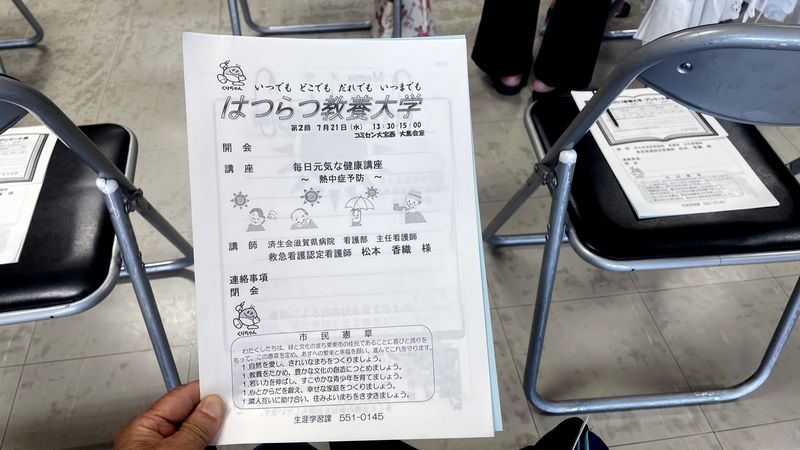 くりちゃん
いつでも どこでも だれでも いつまでも
はつらつ教養大学
第2回 7月21日(水) 13:30-15:00
コミセン大宝西 大集会室
開 会
講 座 毎日元気な健康講座
~ 熱中症予防 ~
講 師 済生会滋賀県病院 看護部 主任看護師
救急看護認定看護師 松本 香織 様
連絡事項
閉 会
くりちゃん
市 民 憲 章
わたくしたちは、緑と文化のまち栗東市の住民であることに喜びと誇りを
もって、この憲章を定め、あすへの繁栄と幸福を願い、進んでこれを守ります。
1.自然を愛し、きれいなまちをつくりましょう。
1.教養をたかめ、豊かな文化の創造につとめましょう。
1.若い力を伸ばし、すこやかな青少年を育てましょう。
1.心とからだを鍛え、幸せな家庭をつくりましょう。
1.隣人互いに助け合い、住みよいまちをきずきましょう。
生涯学習課 551-0145